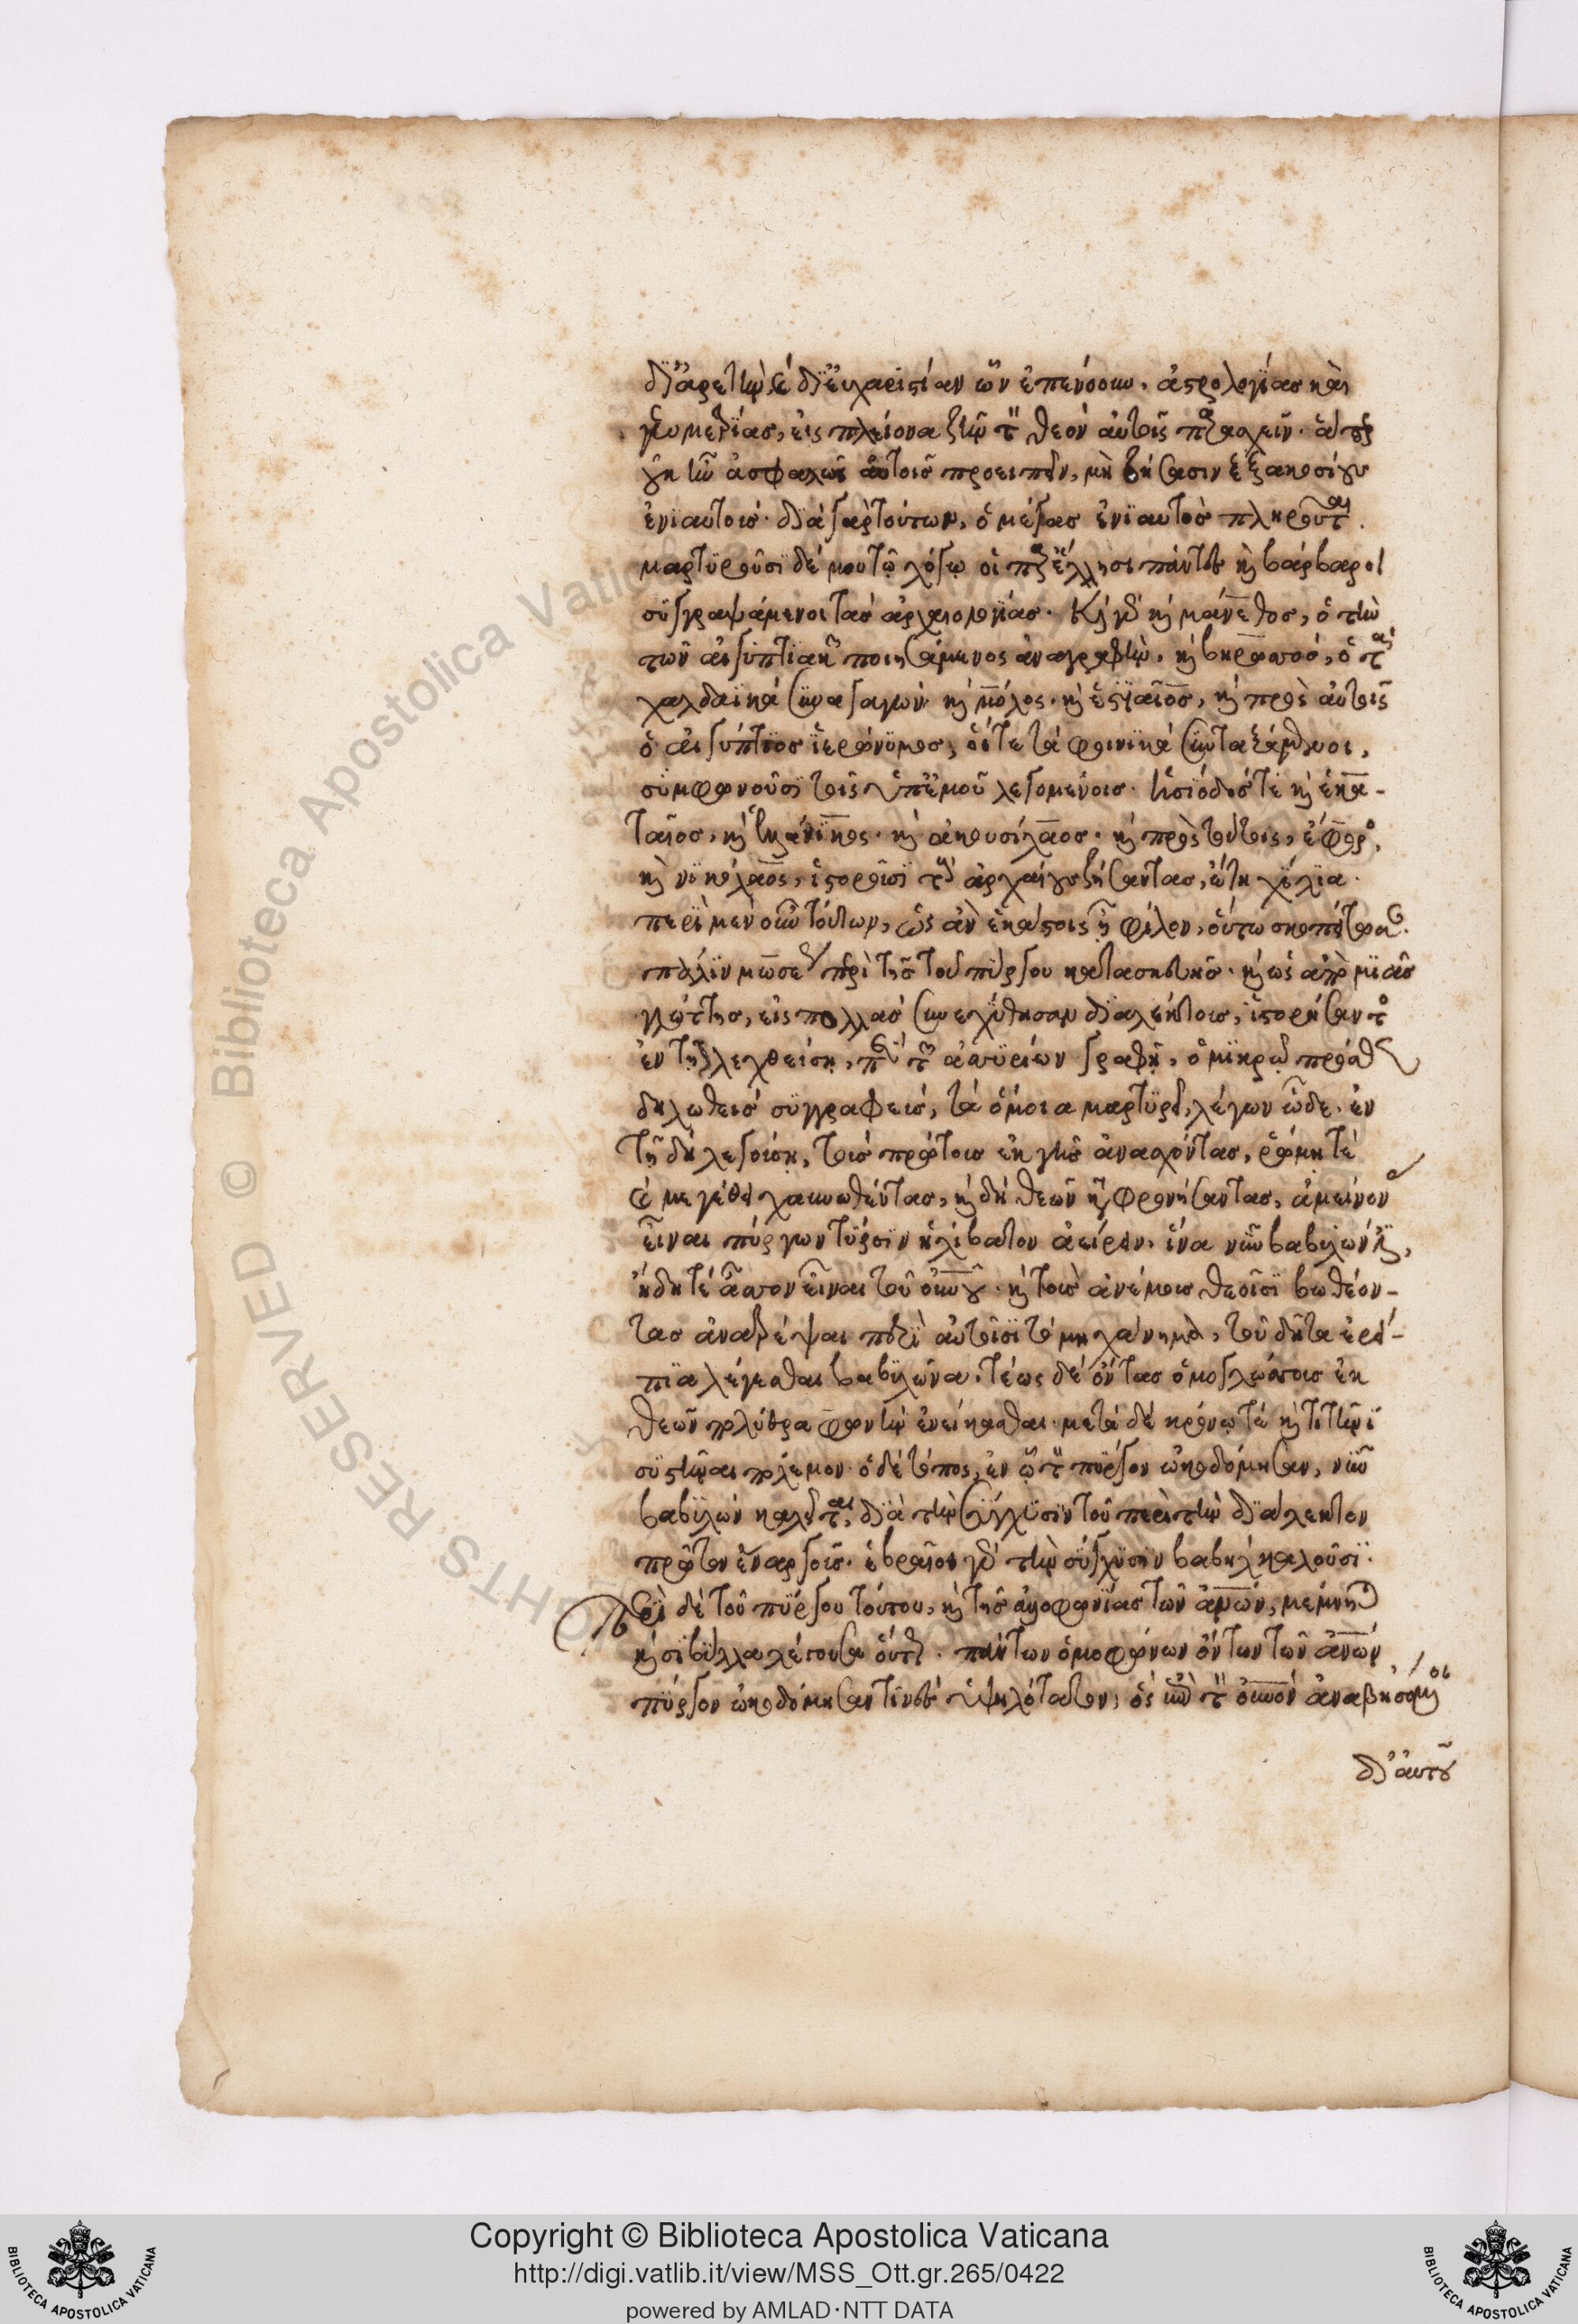 δι' ἀρετὴν καὶ δι' εὐχρηστίαν ὧν ἐπενόουν, ἀστρολογίας καὶ
γεωμετρίας, εἰς πλείονα ζῆν τὸν θεὸν αὐτοῖς παρασχεῖν. ἅπερ
οὐκ ἦν ἀσφαλῶς αὐτοῖς προειπεῖν, μὴ ζήσασιν ἑξακοσίους
ἐνιαυτοὺς. διὰ γὰρ τούτων, ὁ μέγας ἐνιαυτὸς πληροῦται.
μαρτυροῦσι δέ μου τῷ λόγῳ οἱ παρ' ἕλλησι πάντες καὶ βάρβαροι
συγγραψάμενοι τὰς ἀρχαιολογίας. καὶ γὰρ καὶ μάνεθος, ὁ τὴν
τῶν αἰγυπτιακῶν ποιησάμενος ἀναγραφὴν, καὶ βηρωσσὸς, ὁ τὰ
χαλδαϊκὰ συναγαγών. καὶ μόλος. καὶ ἑστιαῖος, καὶ πρὸς αὐτοῖς
ὁ αἰγύπτιος ἱερώνυμος, οἵ τε τὰ φοινικὰ συνταξάμενοι,
συμφωνοῦσι τοῖς ὑπ' ἐμοῦ λεγομένοις. ἡσίοδός τε καὶ ἑκα-
ταῖος, καὶ ἑλλάνικος. καὶ ἀκουσίλαος. καὶ πρὸς τούτοις, ἔφορος,
καὶ νικόλαος, ἱστοροῦσι τοὺς ἀρχαίους ζήσαντας, ἔτη χίλια.
περὶ μὲν οὖν τούτων, ὡς ἂν ἑκάστοις ᾖ φίλον, οὕτω σκοπείτωσαν.
πάλιν μωσέως περὶ τῆς τοῦ πύργου κατασκευῆς. καὶ ὡς ἀπὸ μιᾶς
γλώττης, εἰς πολλὰς συνεχύθησαν διαλέκτους, ἱστορήσαντος
ἐν τῇ λεχθείσῃ, περὶ τῶν ἀσσυρίων γραφῇ, ὁ μικρῷ πρόσθεν
δηλωθεὶς συγγραφεὺς, τὰ ὅμοια μαρτυρεῖ, λέγων ὧδε. ἐν
τῇ δὴ λεγούσῃ, τοὺς πρώτους ἐκ γῆς ἀνασχόντας, ῥώμῃ τὲ
καὶ μεγέθει χαυνωθέντας, καὶ δὴ θεῶν καταφρονήσαντας, ἀμείνονας
εἶναι πύργων τύρσιν ἠλίβατον ἀείρειν, ἵνα νῦν βαβυλών ἐστιν,
ἤδη τὲ ἆσσον εἶναι τοῦ οὐνοῦ. καὶ τοὺς ἀνέμους θεοῖσι βωθέον-
τας ἀνατρέψαι περὶ αὐτοῖσι τὸ μηχάνημα, τοῦ δῆτα ἐρεί-
πια λέγεσθαι βαβυλῶνα. τέως δὲ ὄντας ὁμογλώσσους ἐκ
θεῶν πολύθρα φωνὴν ἐνείκασθαι. μετὰ δὲ κρόνῳ τὲ καὶ τιτῆνι
συστῆναι πόλεμον. ὁ δὲ τόπος, ἐν ᾧ τὸν πύργον ᾠκοδόμησαν, νῦν
βαβυλὼν καλεῖται, διὰ τὴν σύγχυσιν τοῦ περὶ τὴν διάλεκτον
πρῶτον ἐναργοῦς. ἑβραῖοι γὰρ τὴν σύγχυσιν βαβὴλ καλοῦσι.
Περὶ δὲ τοῦ πύργου τούτου, καὶ τῆς ἀλλοφωνίας τῶν ἀνων, μέμνηται
καὶ σίβυλλα λέγουσα οὕτως. πάντων ὁμοφώνων ὄντων τῶν ἀνων
πύργον ᾠκοδόμησαν τινὲς ὑψηλότατον, ὡς ἐπὶ τὸν οὐνὸν ἀναβησόμενοι
δι' αὐτοῦ
Copyright © Biblioteca Apostolica Vaticana
http://digi.vatlib.it/view/MSS_Ott.gr.265/0422
powered by AMLAD·NTT DATA